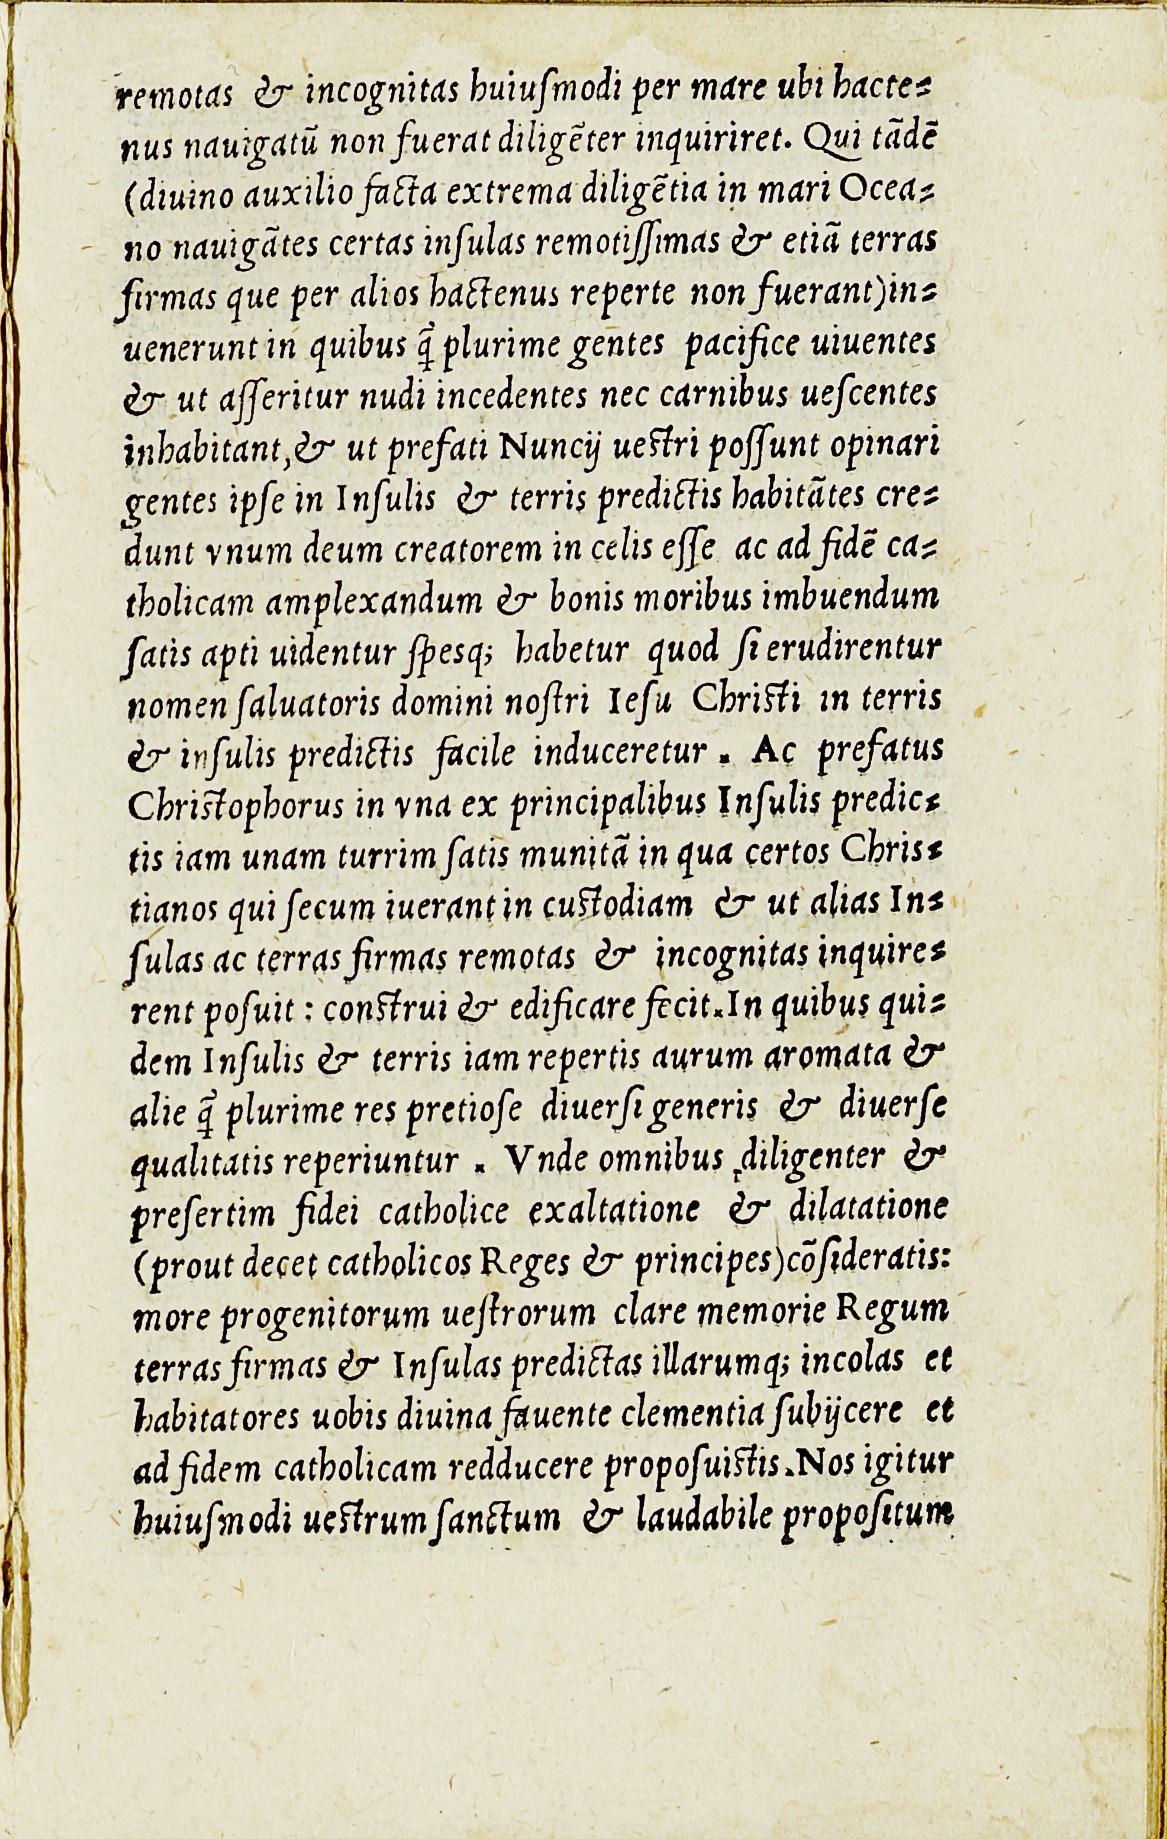 remotas & incognitas huiuſmodi per mare ubi hacte⸗
nus nauigatū non fuerat diligēter inquiriret. Qui tādē
(diuino auxilio facta extrema diligētia in mari Ocea⸗
no nauigātes certas inſulas remotiſſimas & etiā terras
firmas que per alios hactenus reperte non fuerant)in⸗
uenerunt in quibus q̄ plurime gentes pacifice uiuentes
& ut aſſeritur nudi incedentes nec carnibus ueſcentes
inhabitant,& ut prefati Nuncij ueſtri poſſunt opinari
gentes ipſe in Inſulis & terris predictis habitātes cre⸗
dunt vnum deum creatorem in celis eſſe ac ad fidē ca⸗
tholicam amplexandum & bonis moribus imbuendum
ſatis apti uidentur ſpesq; habetur quod ſi erudirentur
nomen ſaluatoris domini noſtri Ieſu Chriſti in terris
& inſulis predictis facile induceretur . Ac prefatus
Chriſtophorus in vna ex principalibus Inſulis predic⸗
tis iam unam turrim ſatis munitā in qua certos Chris⸗
tianos qui ſecum iuerant in cuſtodiam & ut alias In⸗
ſulas ac terras firmas remotas & incognitas inquire⸗
rent poſuit : conſtrui & edificare fecit.In quibus qui⸗
dem Inſulis & terris iam repertis aurum aromata &
alie q̄ plurime res pretioſe diuerſi generis & diuerſe
qualitatis reperiuntur . Vnde omnibus diligenter &
preſertim fidei catholice exaltatione & dilatatione
(prout decet catholicos Reges & principes)cōſideratis:
more progenitorum ueſtrorum clare memorie Regum
terras firmas & Inſulas predictas illarumq; incolas et
habitatores uobis diuina fauente clementia ſubijcere et
ad fidem catholicam redducere propoſuiſtis.Nos igitur
huiuſmodi ueſtrum ſanctum & laudabile propoſitum